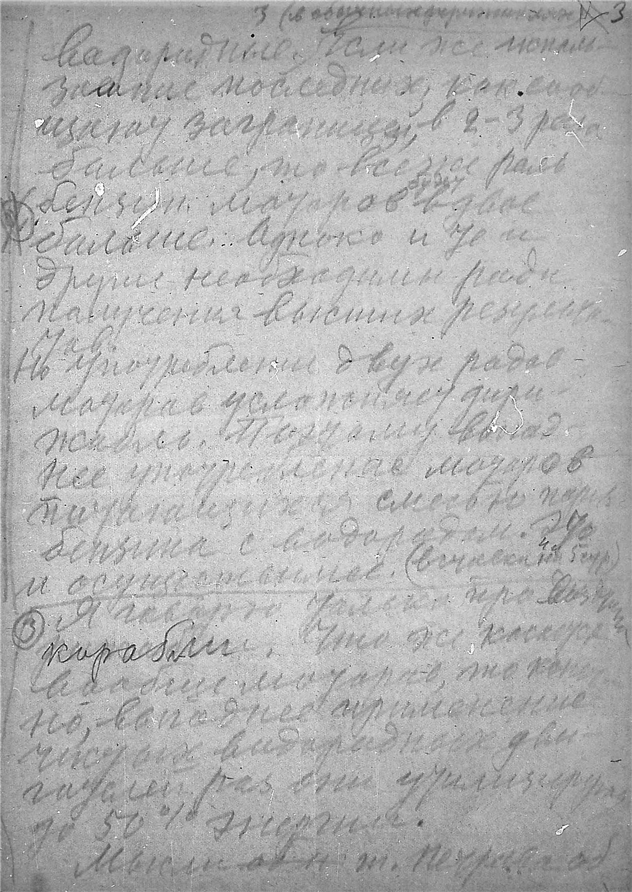 3 (в 3
водородные. Если же исполь-
зование последних, как сооб-
щают заграницей, в 2-3 раза
больше, то все же роль
бензин. моторов будет вдвое
больше. Однако и те и
другие необходимы ради
получения высших результа-
тов.
Но употребление двух родов
моторов усложняет дири-
жабль. Поэтому выгод-
нее употребление моторов
питающихся смесью паров
бензина с водородом. Это
и осуществимее. (Вставка на стр)
3 Я говорю только про воздушн
корабли. Что же касается
вообще моторов, то конеч-
но, выгоднее применение
чистых водородных дви-
гателей, раз они утилизируют
до 50% энергии.
Мысли т. Петрова об